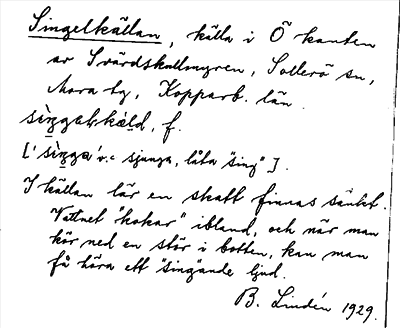 Singelkällan, källa i Ö kanten
av Svärdskullmyren, Sollerö sn,
Mora tg, Kopparb. län.
sìŋgalkæld, f.
[ 'sìŋga' v. = sjunga, låta "sing" ].
I källan lär en skatt finnas sänkt.
Vattnet "kokar" ibland, och när man
kör ned en stör i botten, kan man
få höra ett "singande ljud.
B. Lindén 1929.